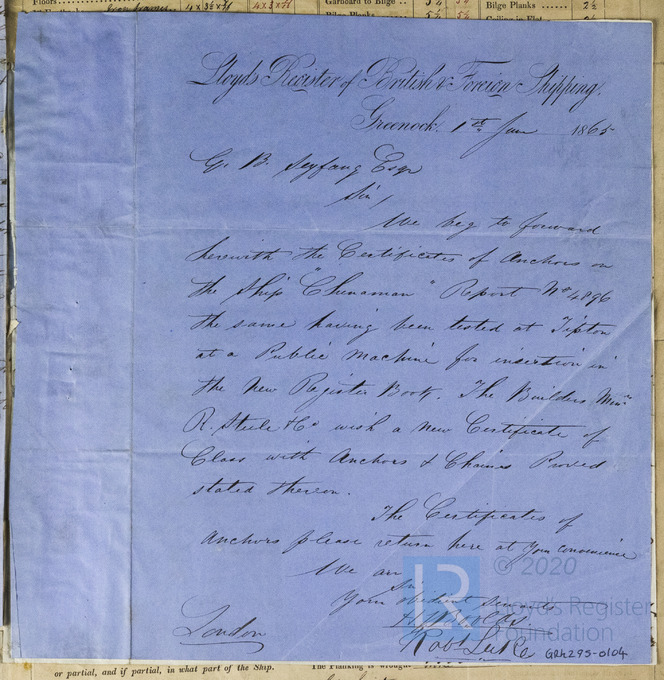 Floors
4 x 3½ x 7/16
4 x 3 x 7/16
Garboard to Bilge ..
Bilge Planks
Bilge Planks ...... 2½
Ceiling in Flat
Lloyds Register of British & Foreign Shipping.
Greenock. 1st June 1865
G. B. Seyfang Esqr
Sir,
We beg to forward
herewith the Certificates of Anchors on
the Ship "Chinaman" Report No 4896
the same having been tested at Tipton
at a Public Machine for insertion in
the New Register Book. The Builders Messrs
R. Steele & Co wish a New Certificate of
Class with Anchors & Chains Proved
stated thereon.
The Certificates of
Anchors please return here at Your convenience
We are
Sir
Your obedient Servants
Robt
London
LR
© 2020
Lloyd's Register
Foundation
GRK295-0104
or partial, and if partial, in what part of the Ship.
The Planking is wrought